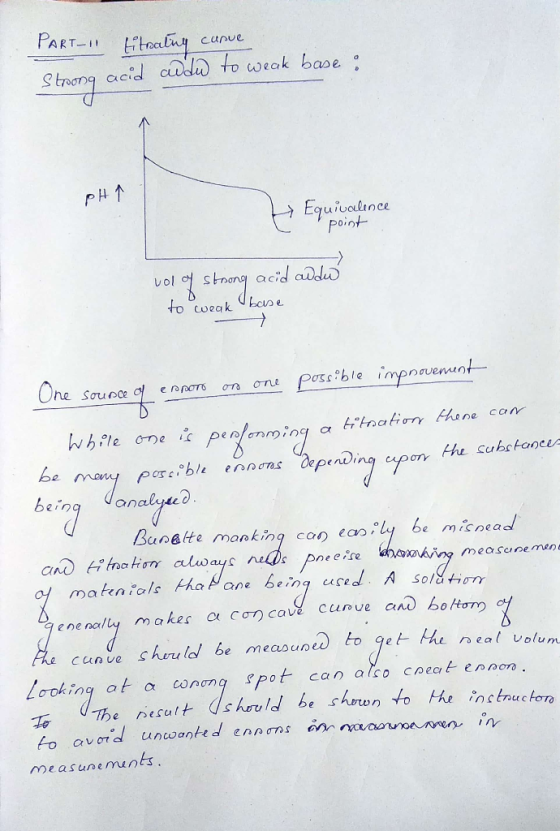 PART-II titrating curve
Strong acid added to weak base :
pH ↑
→ Equivalence
point
vol of strong acid added
to weak base
→
One source of errors or one possible improvement
While one is performing a titration there can
be many possible errors depending upon the substances
being analyzed.
Burette marking can easily be misread
and titration always needs precise measurement
of materials that are being used. A solution
generally makes a concave curve and bottom of
the curve should be measured to get the real volum
Looking at a wrong spot can also creat error.
The result should be shown to the instructor
to avoid unwanted errors in
measurements.